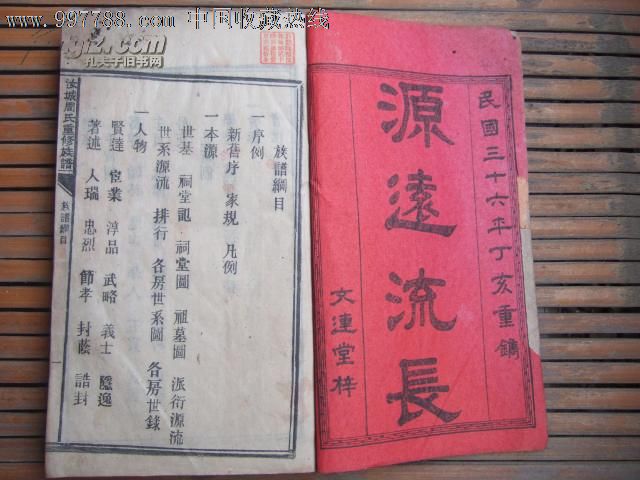 www.997788.com 中国收藏热线
孔夫子旧书网
民國三十六年丁亥重鐫
源遠流長
文連堂梓
族譜綱目
一序例
新舊序 家規 凡例
一本源
世基 祠堂記 祠堂圖 祖墓圖 派衍源流
世系源流 排行 各房世系圖 各房世錄
一人物
賢達 宦業 淳品 武略 義士 隱逸
著述 人瑞 忠烈 節孝 封蔭 誥封
汝城周氏重修族譜 族譜綱目 一